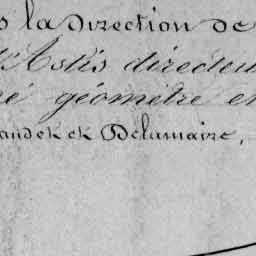 s la Direction de
d'Astis directeur
né géomètre en
audet et Delamaire,